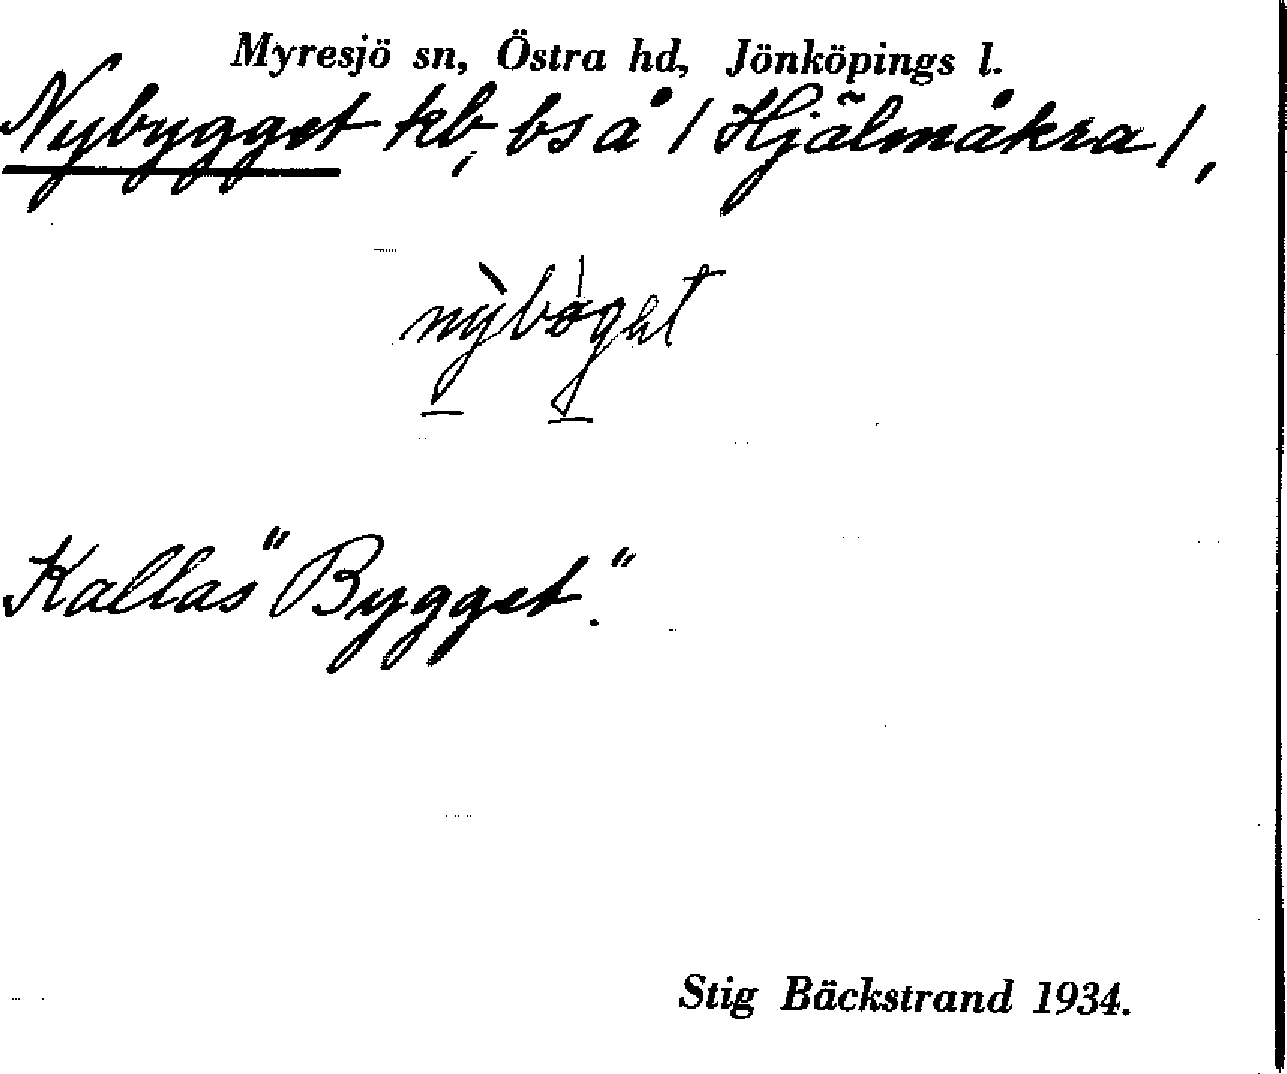 Myresjö sn, Östra hd, Jönköpings l.
Nybygget kb, bs å / Hjälmåkra /,
Kallas "Bygget."
Stig Bäckstrand 1934.